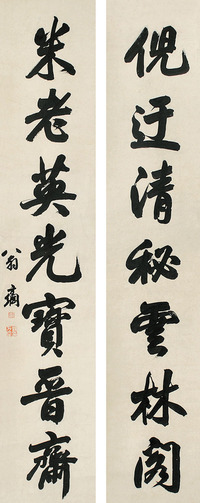 倪迂清秘雲林閣
米老英光寶晉齋
翁